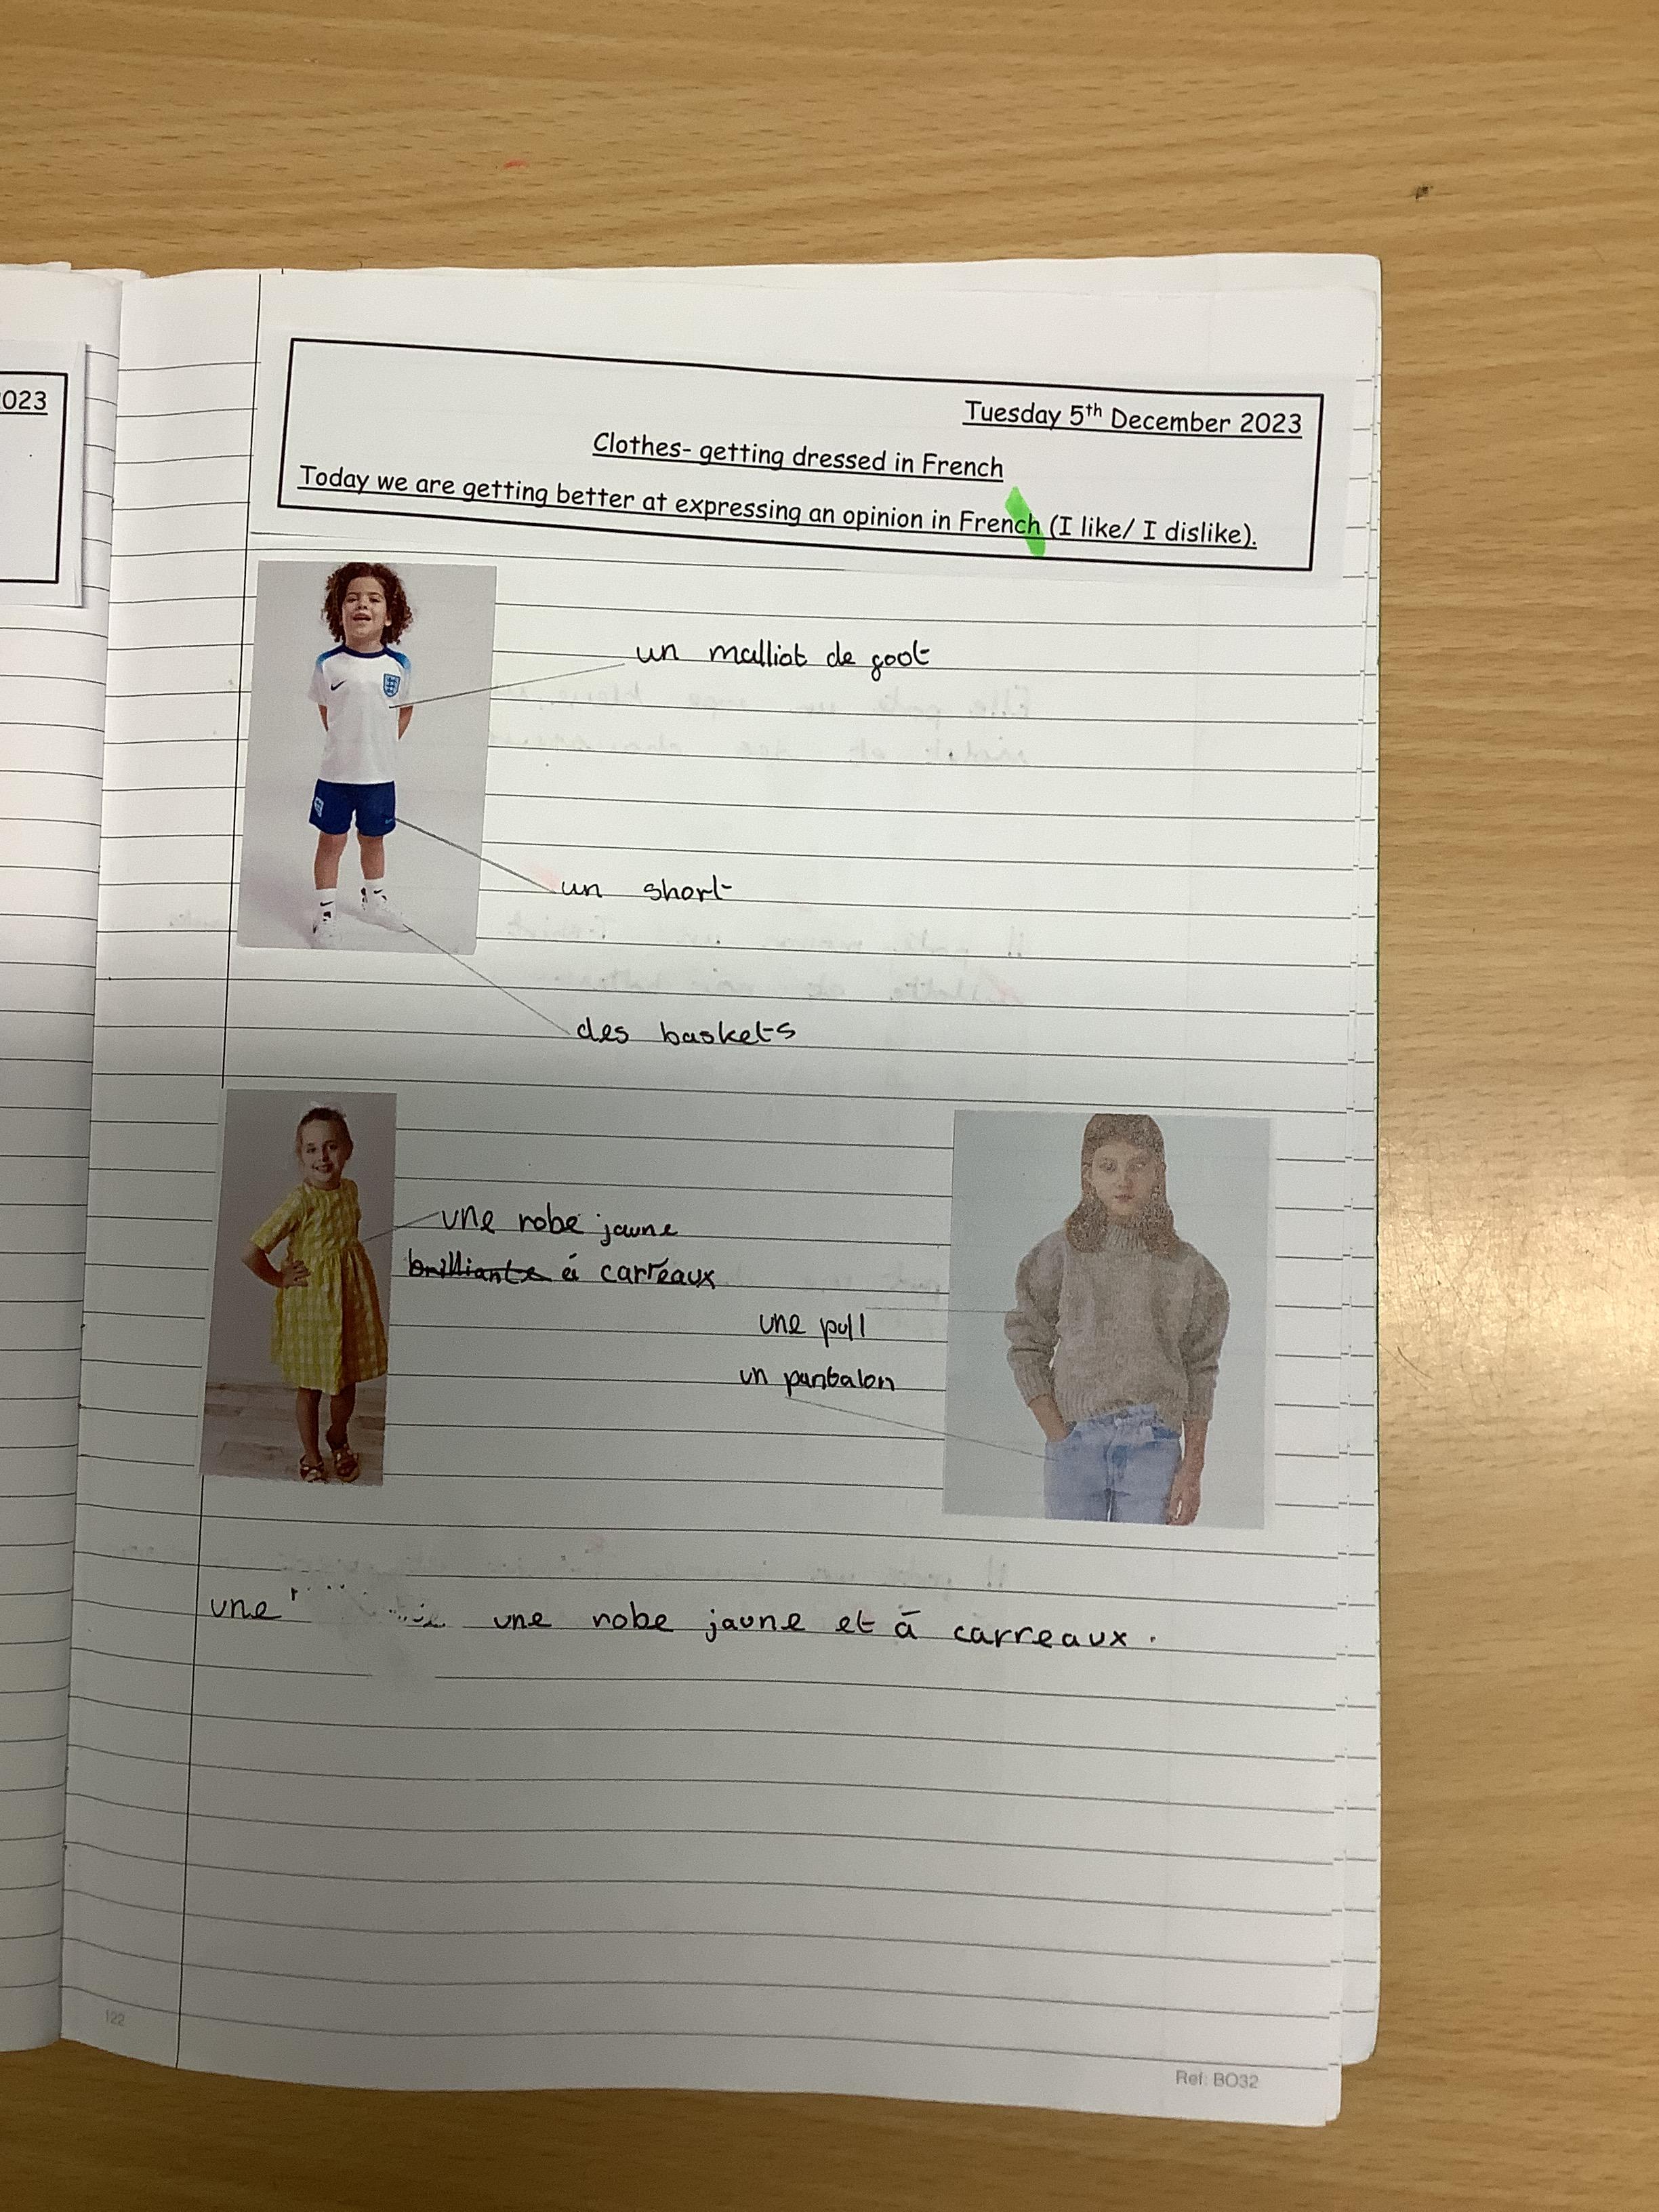 023
Tuesday 5th December 2023
Clothes- getting dressed in French
Today we are getting better at expressing an opinion in French (I like/ I dislike).
un malliot de foot
un short
des baskets
une robe jaune
brilliante à carreaux
une pull
un pantalon
une une robe jaune et à carreaux.
122
Ref: BO32